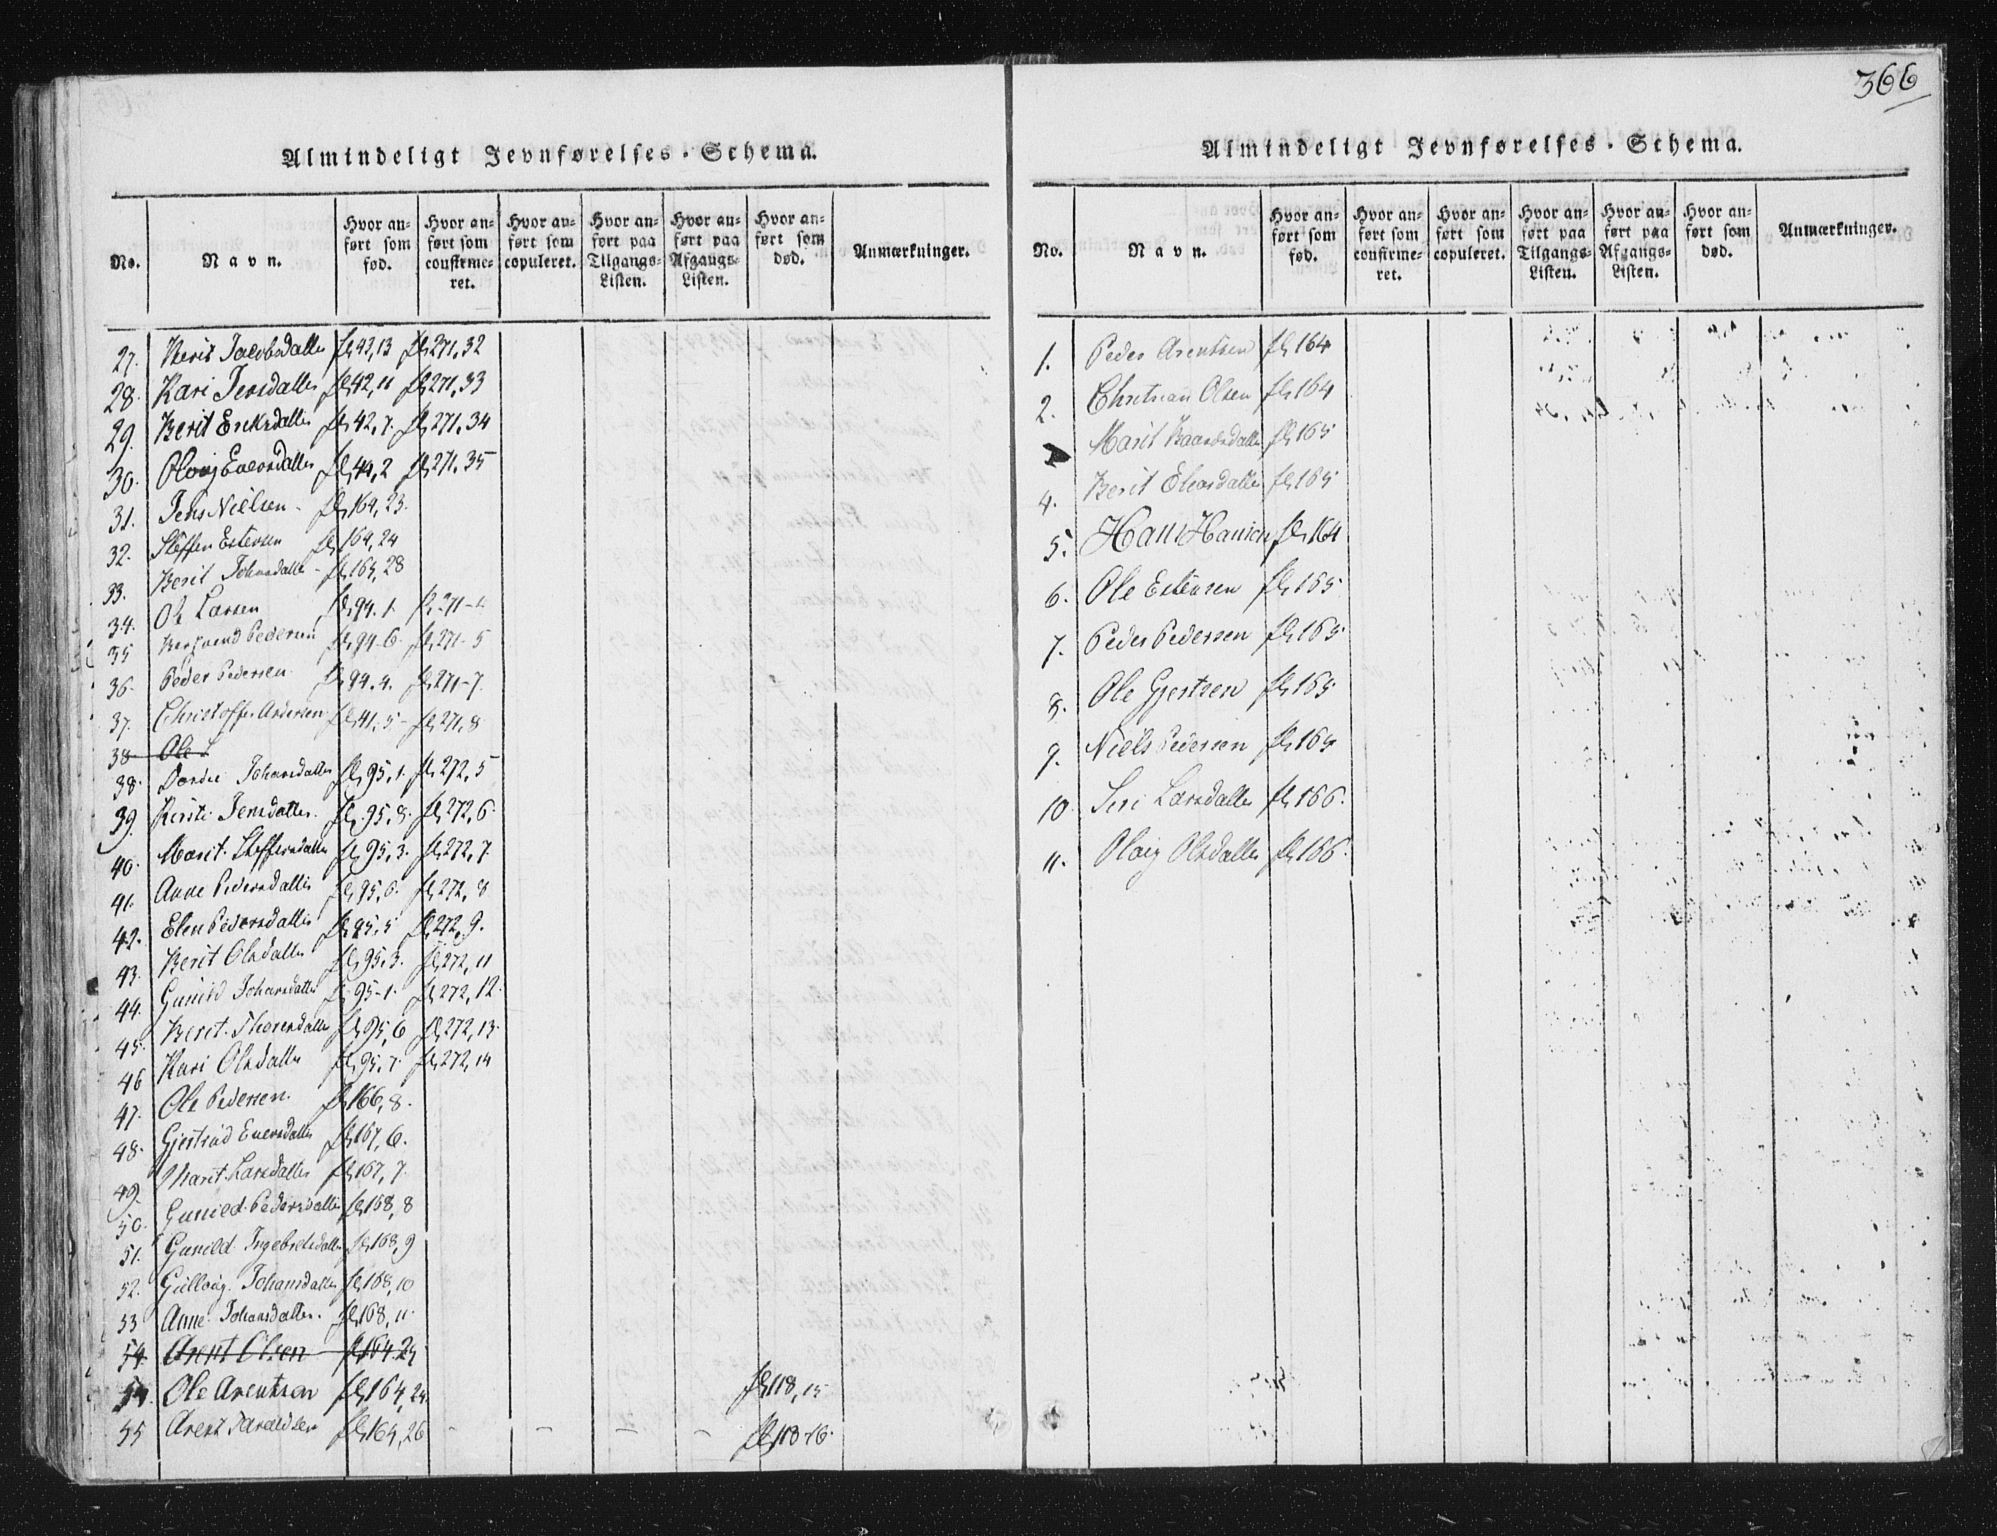 366
Almindeligt Jevnførelses-Schema.
No. Navn. Hvor anført som fød. Hvor anført som confirmeret. Hvor anført som copuleret. Hvor anført paa Tilgangs-Listen. Hvor anført paa Afgangs-Listen. Hvor anført som død. Anmærkninger.
27. Berit Jacobsdatter fl 42,13 fl 271,32
28. Kari Jensdatter fl 42,11 fl 271,33
29. Berit Eriksdatter fl 42,7. fl 271,34
30. Olovig Evensdatter fl 44,2 fl 271,35
31. Jens Nielsen fl 164,23.
32. Steffen Estensen fl 164,24
33. Berit Johansdatter fl 165,28
34. Ole Larsen fl 94.1. fl 271-1.
35 Bersvend Pedersen fl 94-6. fl 271-5
36. Peder Pedersen fl 94.4. fl 271-7.
37. Christoffer Andersen fl 41,5- fl 271,8
38 Ole L
38. Dordie Johansdatter fl 95,1. fl 272,5
39. Kirsti Jensdatter. fl 95,8. fl 272,6.
40. Marit Steffensdatter fl 95,3. fl 272,7.
41. Anne Pedersdatter fl 95,6. fl 272,8
42. Elen Pedersdatter fl 95,5 fl 272,9.
43. Berit Olsdatter fl 95,3. fl 272,11
44. Gunild Johansdatter fl 95-1. fl 272,12.
45. Berit Thoresdatter fl 95,6 fl 272,13.
46 Kari Olsdatter fl 95,7. fl 272,14
47. Ole Pedersen. fl 166,8.
48. Gjertrud Evensdatter fl 167,6.
49. Marit Larsdatter fl 167,7.
50. Gunild Pedersdatter fl 168,8
51. Gunild Ingebrigtsdatter fl 168,9
52. Gulloug Johansdatter fl 168,10
53 Anne Johansdatter. fl 168,11.
54. Arent Olsen fl 164.25
54. Ole Arentsen fl 164,25 fl 118,15
55 Arent fl 164,26 - - - - fl 118-16.
Almindeligt Jevnførelses-Schema.
No. Navn. Hvor anført som fød. Hvor anført som confirmeret. Hvor anført som copuleret. Hvor anført paa Tilgangs-Listen. Hvor anført paa Afgangs-Listen. Hvor anført som død. Anmærkninger.
1. Peder Arentsen fl 164
2. Christian Olsen fl 164
Marit Baardsdatter fl 165
4. Berit fl 165
5. Hans Hansen fl 164
6. Ole Estensen fl 165.
7. Peder Pedersen fl 165.
8. Ole Gjertsen fl 165.
9. Niels Pedersen fl 165.
10. Siri Larsdatter fl 166.
11. Oloug Olsdatter fl 166.